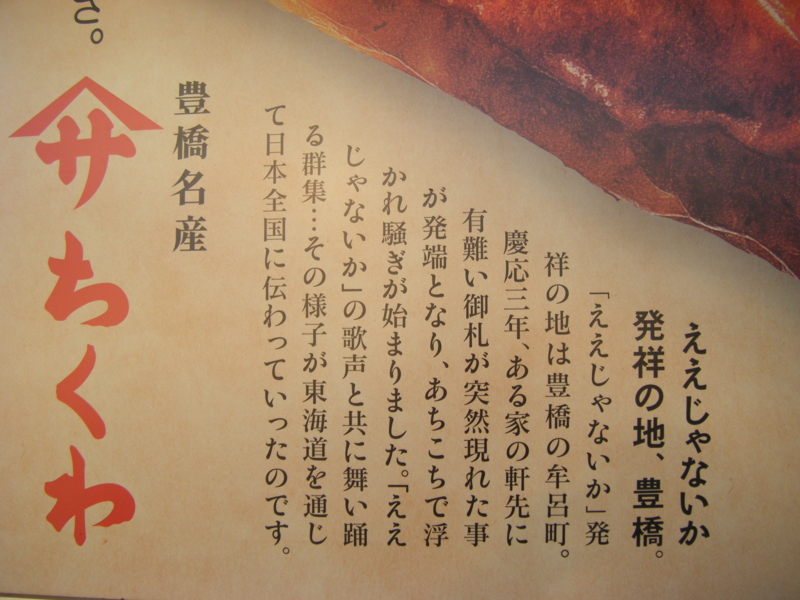 ええじゃないか
発祥の地、豊橋。
「ええじゃないか」発
祥の地は豊橋の牟呂町。
慶応三年、ある家の軒先に
有難い御札が突然現れた事
が発端となり、あちこちで浮
かれ騒ぎが始まりました。「ええ
じゃないか」の歌声と共に舞い踊
る群集…その様子が東海道を通じ
て日本全国に伝わっていったのです。
豊橋名産
サちくわ
さ。